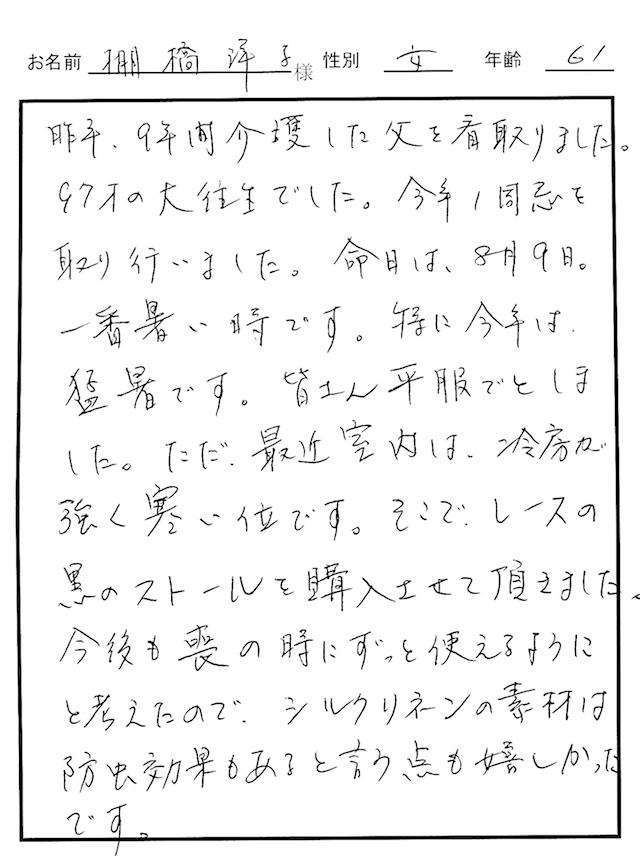 お名前 棚橋洋子様 性別 女 年齢 61
昨年、9年間介護した父を看取りました。
97才の大往生でした。今年1周忌を
取り行いました。命日は、8月9日。
一番暑い時です。特に今年は、
猛暑です。皆さん平服でとしま
した。ただ、最近室内は、冷房が
強く寒い位です。そこで、レースの
黒のストールを購入させて頂きました。
今後も喪の時にずっと使えるように
と考えたので、シルクリネンの素材は
防虫効果もあると言う点も嬉しかった
です。